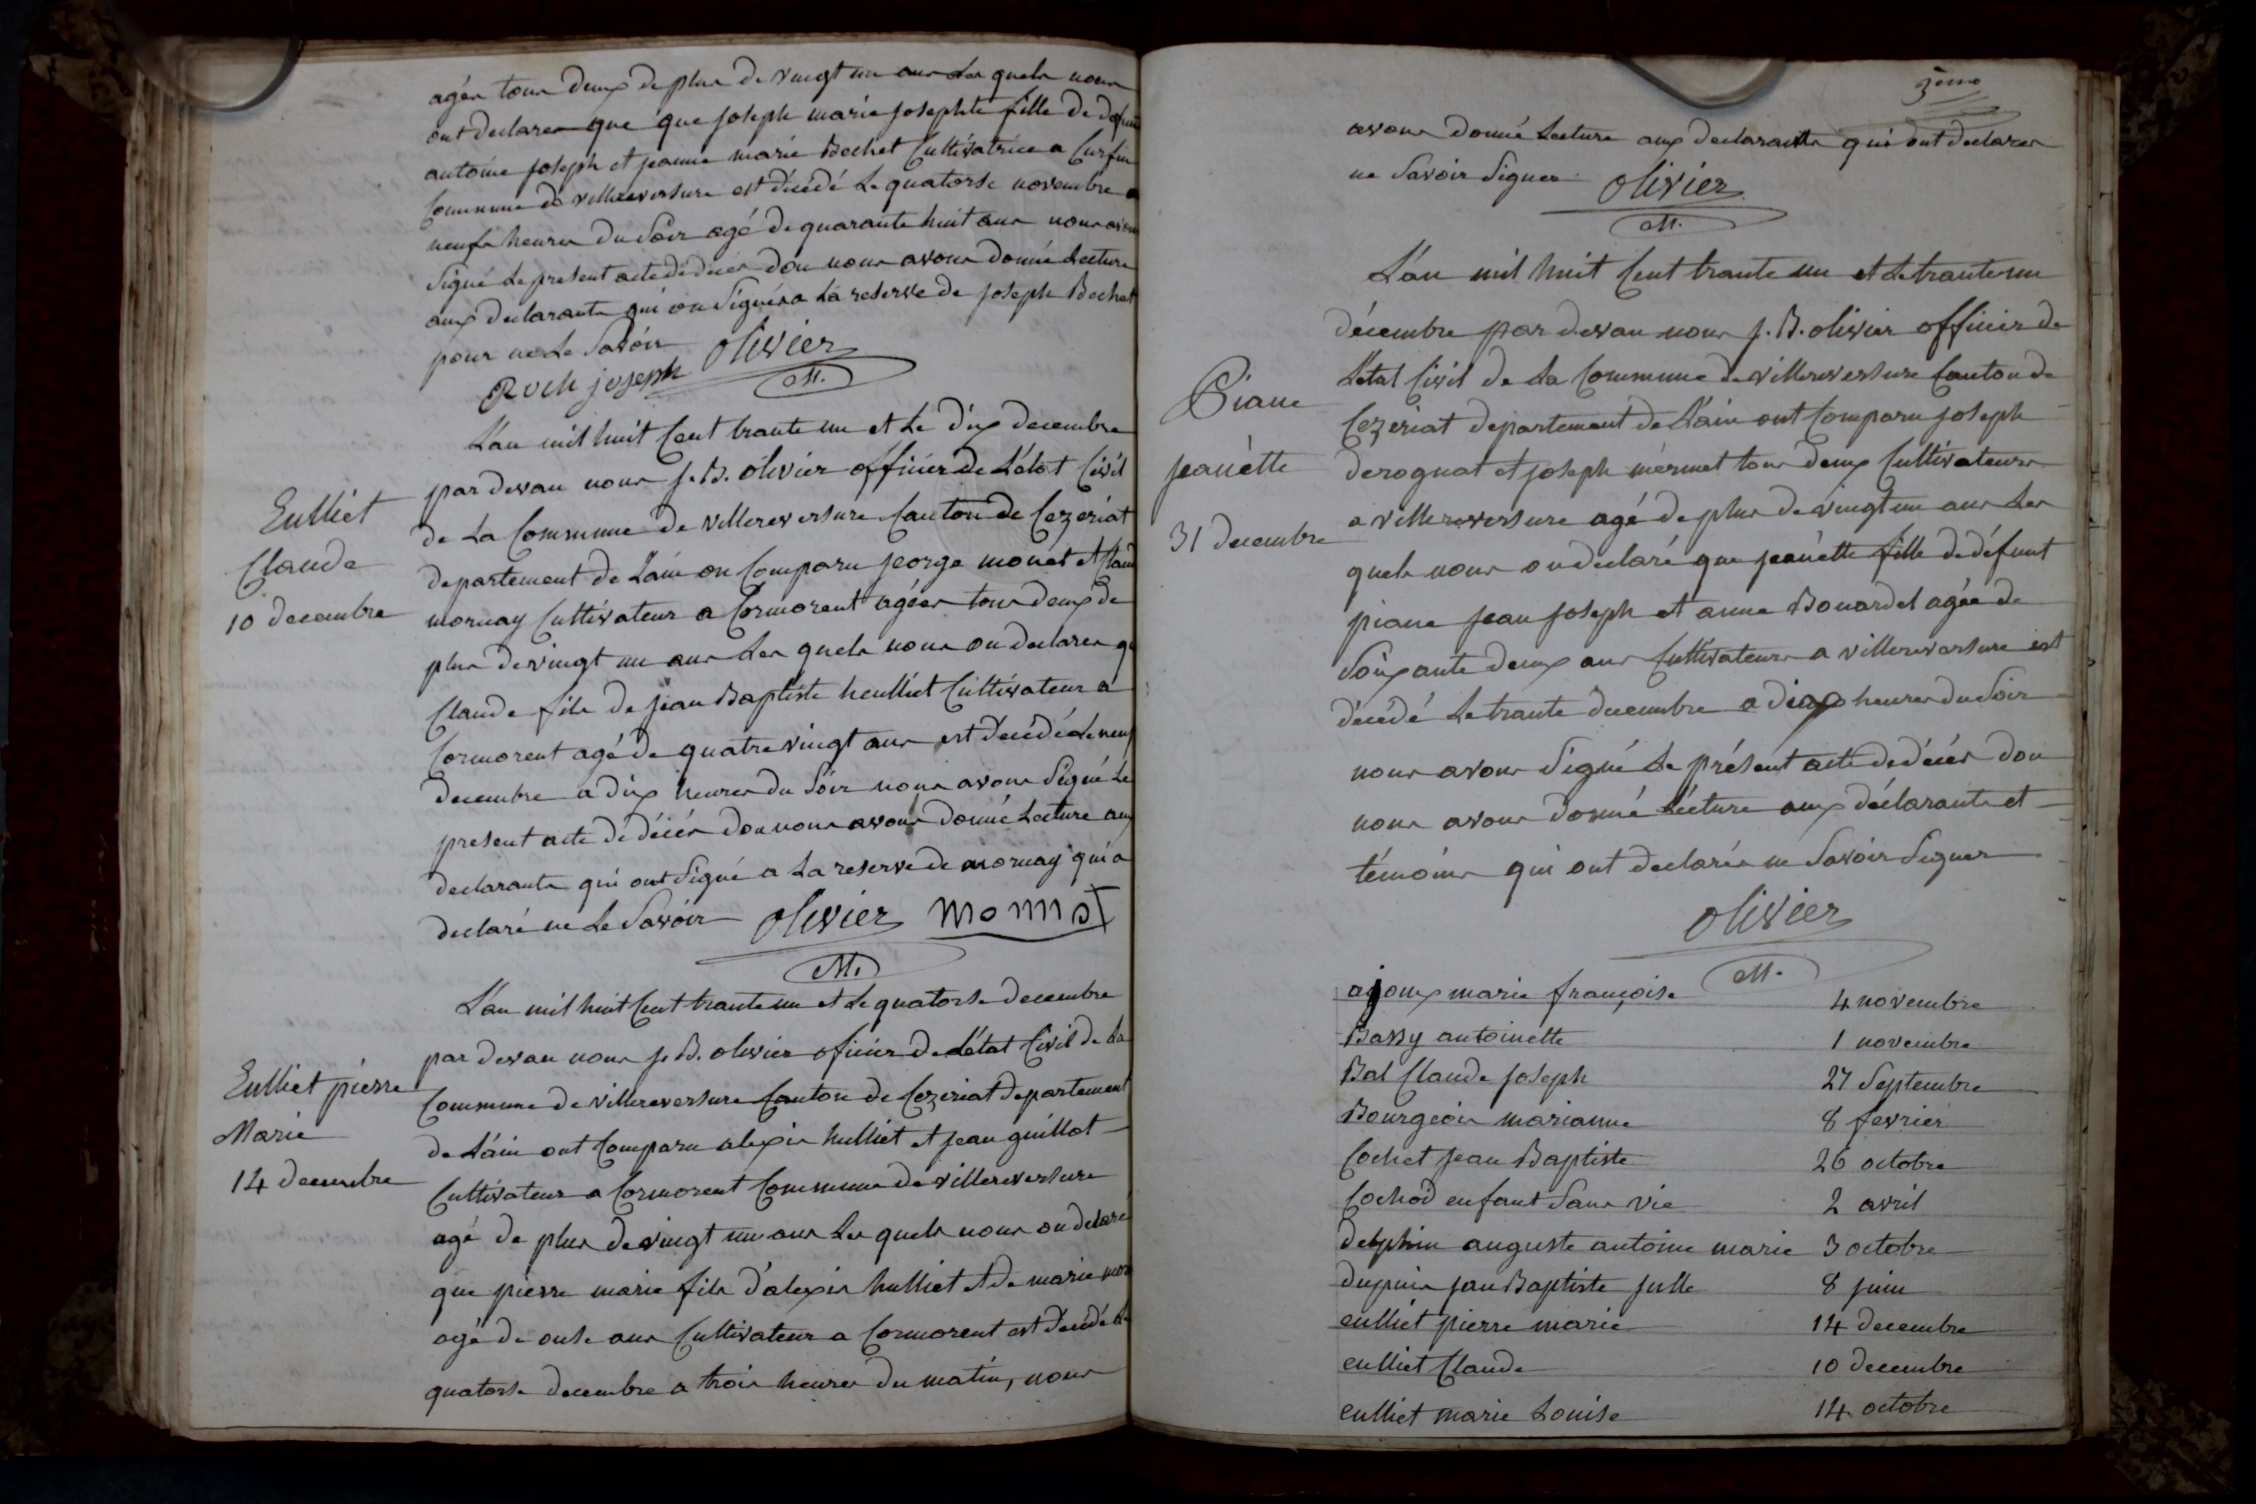 agés tous deux de plus de vingt un ans les quels nous
ont declares que que joseph marie josephte fille de defunt
antoine joseph et jeanne marie Bochet Cultivatrice a Curfin
Commune de villereversure est décédé le quatorse novembre a
neufs heures du Soir agé de quarante huit ans nous avons
Signé le present acte dé décés don nous avons donné Lecture
aux declarants qui on Signés a la reserve de joseph Bochet
pour ne le Savoir Olivier
Roch joseph M.
L'an mil huit Cent trante un et Le dix decembre
par devan nous J. B. olivier officier de L'état Civil
de La Commune de villereversure Canton de Cezeriat
departement de L'ain on Comparu jeorge monet et Claude
mornay Cultivateur a Cormorent agées tous deux de
plus de vingt un ans Les quels nous on declares que
Claude fils de jean Baptiste heulliet Cultivateur a
Cormorent agé de quatre vingt ans est décédé Le neuf
decembre a dix heures du Soir nous avons Signé Le
present acte dé décés don nous avons Donné Lecture aux
declarants qui ont Signé a La reserve de mornay qui a
declaré ne Le Savoir Olivier
M.
Eulliet
Claude
10 decembre
L'an mil huit Cent trante un et Le quatorse decembre
par devan nous J. B. olivier oficier de L'état Civil de La
Commune de villereversure Canton de Cezeriat departement
de L'ain ont Comparu alexis hulliet et jean guillot
Cultivateur a Cormorent Commune de villereversure
agé de plus de vingt un ans Les quels nous on declaré
que pierre marie fils d'alexis hulliet et de marie
agé de onse ans Cultivateur a Cormorent est décédé Le
quatorse decembre a trois heures du matin, nous
Eulliet pierre
Marie
14 decembre
3eme
avons donné Lecture aux declarants qui ont declares
ne Savoir Signer Olivier
M.
L'an mil huit Cent trante un et Le trante un
décembre par devan nous J. B. olivier officier de
L'état Civil de La Commune de villereversure Canton de
Cezeriat departement de L'ain ont Comparu joseph
derognat et joseph mermet tous deux Cultivateurs
a villereversure agé de plus de vingt un ans Les
quels nous on declaré que jeanétte fille de défunt
piane jean joseph et anne Bouardel agée de
Soixante deux ans Cultivateurs a villereversure est
décédé Le trante decembre a dix heures du Soir
nous avons Signé Le présent acte de décés don
nous avons donné Lécture aux déclarants et
témoins qui ont declarés ne Savoir Signer
Olivier
M.
Piane
jeanétte
31 decembre
ajoux marie françoise 4 novembre
Bassy antoinette 1 novembre
Bal Claude joseph 27 Septembre
Bourgeois marianne 8 fevrier
Cochet jean Baptiste 26 octobre
Cochod enfant Sans vie 2 avril
delphin auguste antoine marie 3 octobre
dupuis jean Baptiste julle 8 juin
eulliet pierre marie 14 decembre
eulliet Claude 10 decembre
eulliet marie Louise 14 octobre